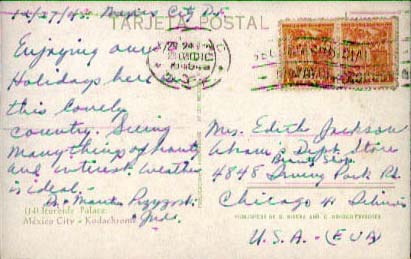 12/27/45. Mexico City D.F.
TARJETA POSTAL
Enjoying our
Holidays here in
this lovely
country. Seeing
many things of beauty
and interest. Weather
is ideal.
Dr. Monte
(14) Iturbide Palace
México City - Kodachrome
Mrs. Edith Jackson
Dept. Store
Beauty Shop.
4848 Irving Park Rd.
Chicago 41 Illinois
U.S.A. - (EUA)